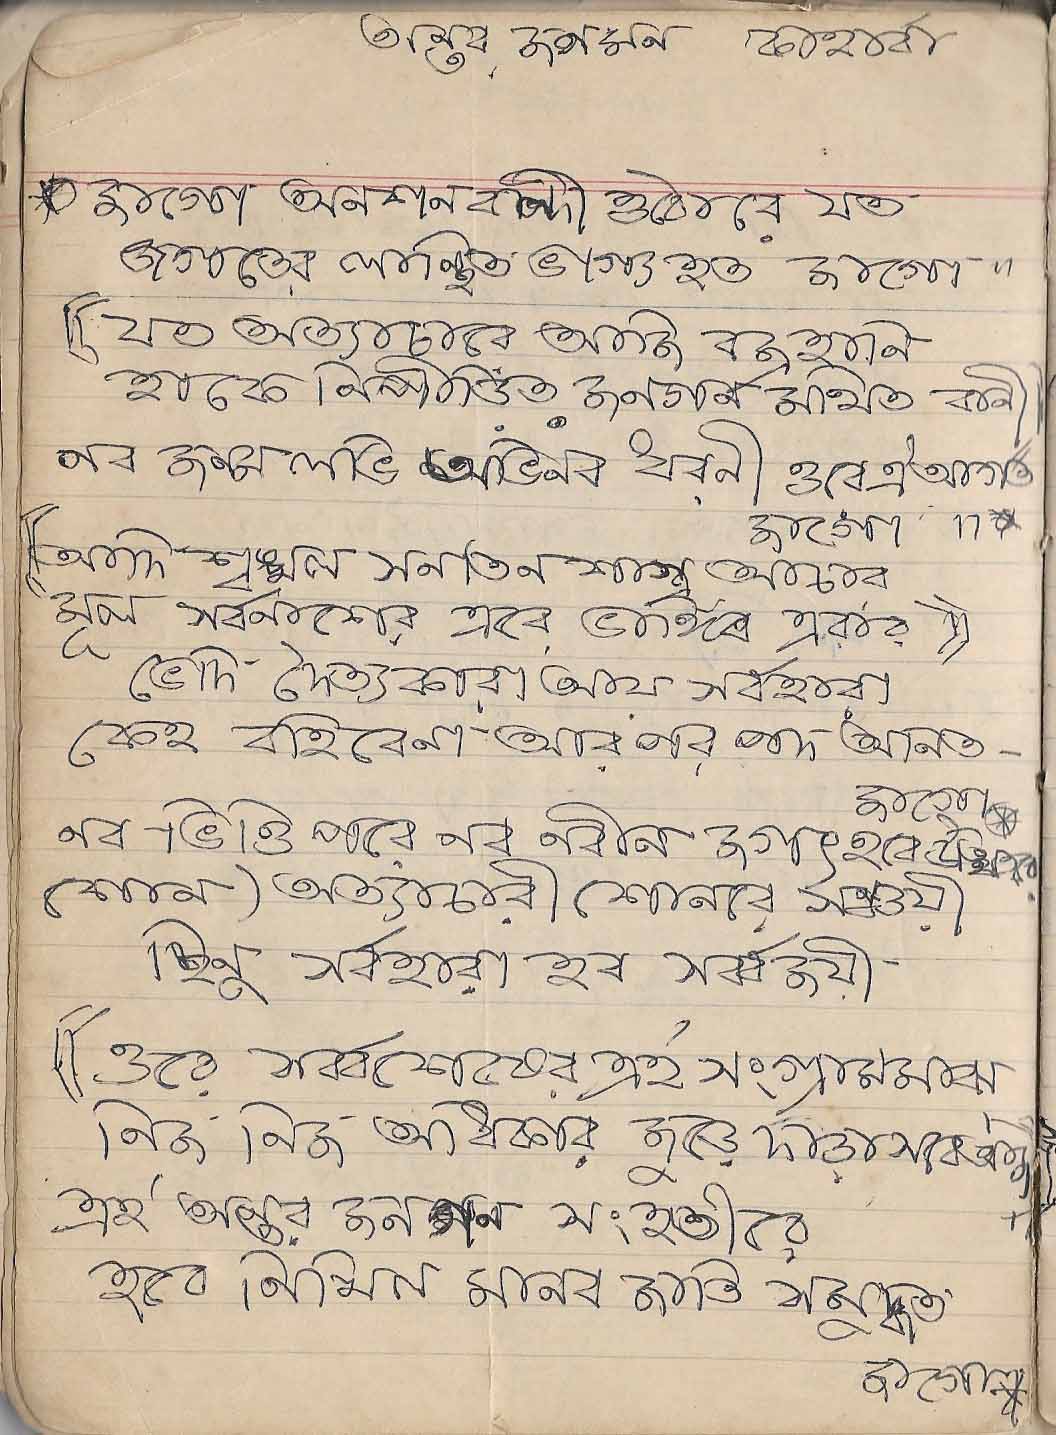 অন্তর জনমন কাহার্বা
জাগো অনশনবন্দী ওঠোরে যত
জগতের লাঞ্ছিত ভাগ্যহত জাগো "
((যত অত্যাচারে আজি বজ্রহানি
হাকে নিপীড়িত জনগনমথিত বানী))
নব জন্ম লভি অভিনব ধরনী ওরে ঐ আগত
জাগো ॥
((আদি শৃঙ্খল সনাতন শাস্ত্র আচার
মূল সর্বনাশের এরে ভাঙ্গিব এবার ))
ভেদি দৈত্যকারা আয় সর্বহারা
কেহ রহিবেনা আর পর পদ আনত -
জাগো
নব ভিত্তি পরে নব নবীন জগৎ হবে
শোন) অত্যাচারী শোনরে সঞ্চয়ী
ছিনু সর্বহারা হব সর্ব্বজয়ী
((ওরে সর্ব্বশেষের এই সংগ্রামমাঝ
নিজ নিজ অধিকার জুড়ে দাড়া সবে
এই অন্তর জনমন সংহতীরে
হবে নিখিল মানব জাতি সমুদ্ধত
জাগো